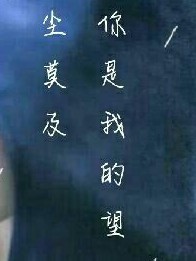 你是我的望
尘莫及